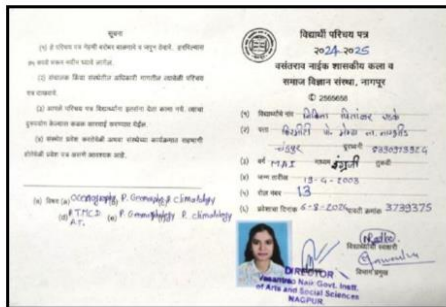 सूचना
(१) हे परिचय पत्र नेहमी बरोबर बाळगावे व जपून ठेवावे. हरविल्यास
रुपये भरून नवीन घ्यावे लागेल.
(२) संचालक किंवा संस्थेतील अधिकारी मागतील त्यावेळी परिचय
पत्र दाखवावे.
(३) आपले परिचय पत्र विद्यार्थ्यांना इतरांना देता कामा नये. त्याचा
दुरुपयोग केल्यास कडक कारवाई करण्यात येईल.
(४) संस्थेत प्रवेश करतेवेळी अथवा संस्थेच्या कार्यक्रमात सहभागी
होतेवेळी प्रवेश पत्र असणे आवश्यक आहे.
(अ) विषय (a) Oceanography, P. Geography, climatology
(d) P.T.M.C.D (e) P. Geomorphology P. climatology
A.T.
विद्यार्थी परिचय पत्र
२०२४-२०२५
वसंतराव नाईक शासकीय कला व
समाज विज्ञान संस्था, नागपूर
✆ 2565658
(१) विद्यार्थ्याचे नांव निकिता
(२) पत्ता
चंद्रपूर दूरध्वनी
(३) वर्ग MAI माध्यम इंग्रजी तुकडी
(४) जन्म तारीख 13-4-2003
(५) रोल नंबर 13
(६) प्रवेशाचा दिनांक 6-8-2024 पावती क्रमांक 3739375
विद्यार्थ्याची स्वाक्षरी
विभाग प्रमुख
DIRECTOR
Vasantrao Naik Govt. Instt.
of Arts and Social Sciences
NAGPUR